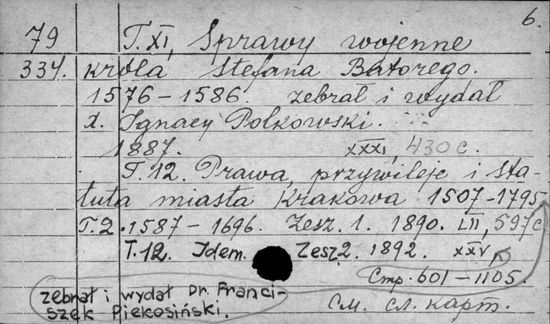 6.
79 T. XI, Sprawy wojenne
334. króla Stefana Batorego.
1576–1586. zebrał i wydał
X. Ignacy Polkowski.
1887. XXXI, 430 c.
T. 12. Prawa, przywileje i sta-
tuta miasta Krakowa 1507–1795
T. 2. 1587–1696. Zesz. 1. 1890. LII, 597 c
T. 12. Idem. Zesz. 2. 1892. XXV,
Стр. 601–1105.
zebrał i wydał Dr. Franci-
szek Piekosiński.
См. сл. карт.